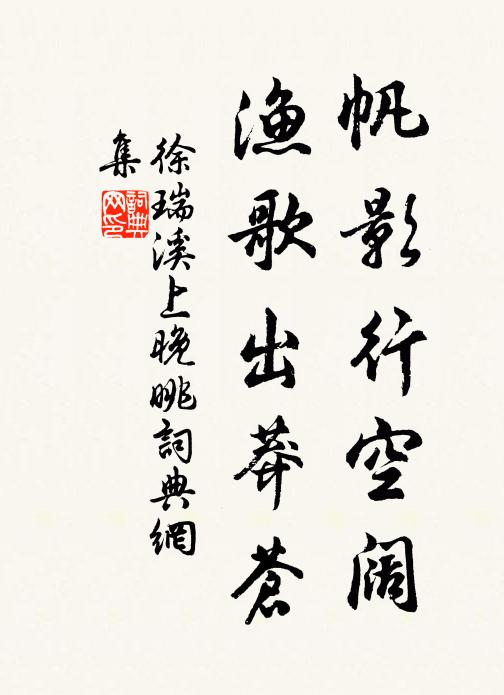 帆影行空阔
渔歌出莽苍
徐瑞溪上晚眺詞典網
集
詞典
网印